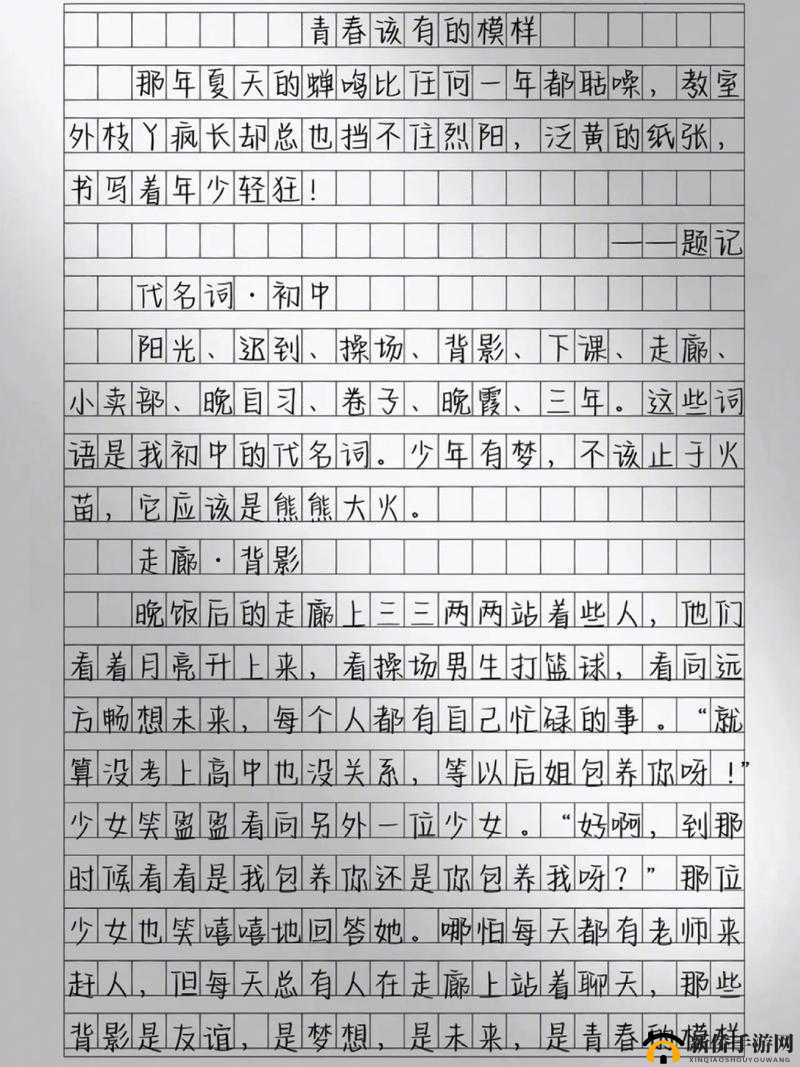 青春该有的模样
那年夏天的蝉鸣比任何一年都聒噪，教室
外枝丫疯长却总也挡不住烈阳，泛黄的纸张，
书写着年少轻狂！
——题记
代名词·初中
阳光、迟到、操场、背影、下课、走廊、
小卖部、晚自习、卷子、晚霞、三年。这些词
语是我初中的代名词。少年有梦，不该止于火
苗，它应该是熊熊大火。
走廊·背影
晚饭后的走廊上三三两两站着些人，他们
看着月亮升上来，看操场男生打篮球，看向远
方畅想未来，每个人都有自己忙碌的事。“就
算没考上高中也没关系，等以后姐包养你呀！”
少女笑盈盈看向另外一位少女。“好啊，到那
时候看看是我包养你还是你包养我呀？”那位
少女也笑嘻嘻地回答她。哪怕每天都有老师来
赶人，但每天总有人在走廊上站着聊天，那些
背影是友谊，是梦想，是未来，是青春的模样
新侨手游网
XINQIAOSHOUYOUWANG